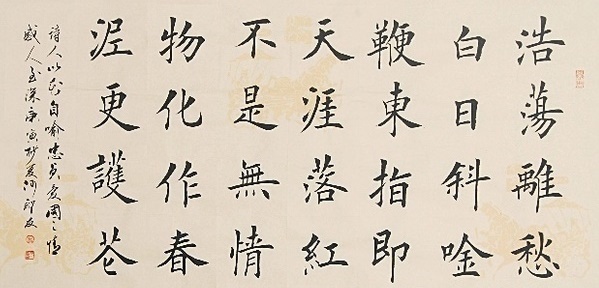 浩蕩離愁
白日斜唫
鞭東指即
天涯落紅
不是無情
物化作春
泥更護花
詩人以花自喻忠貞愛國之情
感人至深庚寅夏